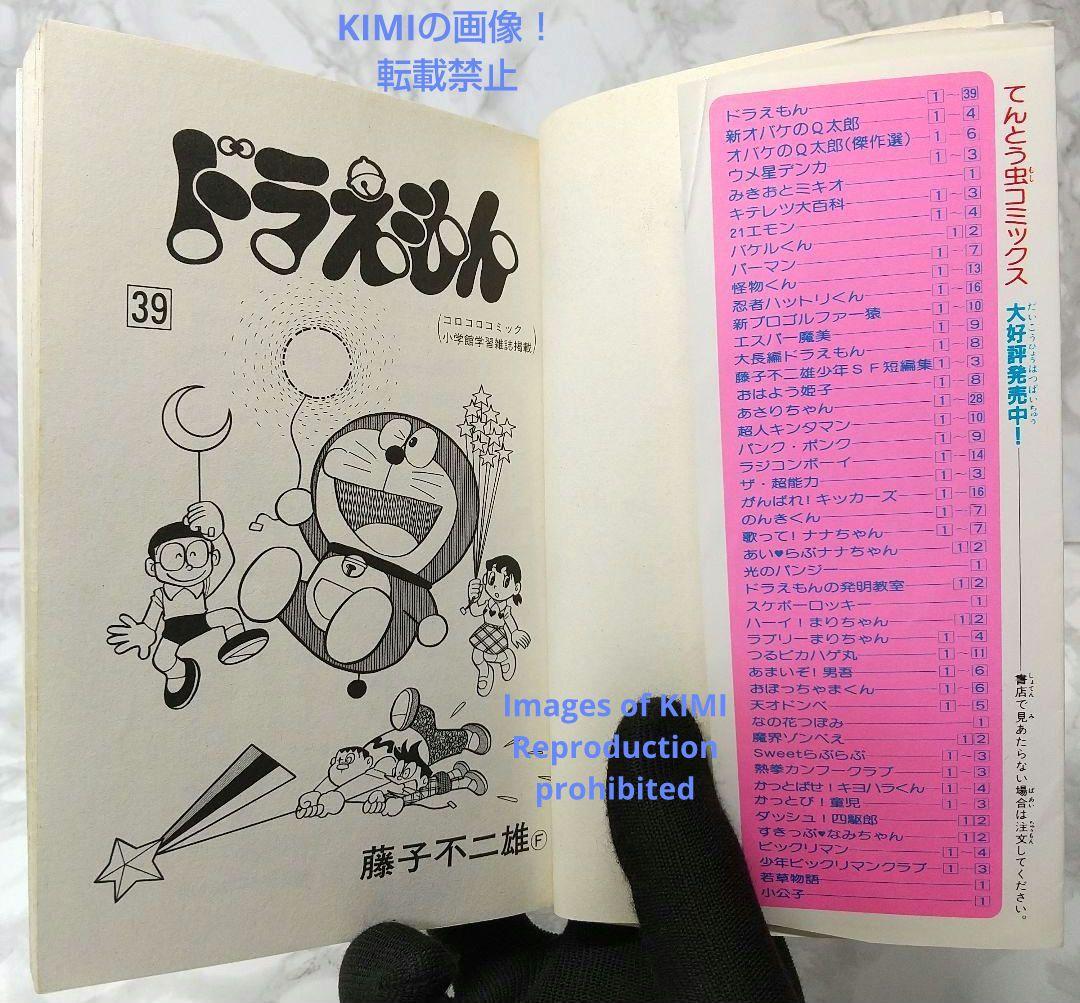 KIMIの画像！
転載禁止
ドラえもん
39
コロコロコミック
小学館学習雑誌掲載
藤子不二雄Ⓕ
Images of KIMI
Reproduction
prohibited
てんとう虫コミックス 大好評発売中！ 書店で見あたらない場合は注文してください。
ドラえもん 1～39
新オバケのQ太郎 1～4
オバケのQ太郎(傑作選) 1～6
ウメ星デンカ 1～3
みきおとミキオ 1
キテレツ大百科 1～3
21エモン 1～4
バケルくん 1 2
パーマン 1～7
怪物くん 1～13
忍者ハットリくん 1～16
新プロゴルファー猿 1～10
エスパー魔美 1～9
大長編ドラえもん 1～8
藤子不二雄少年SF短編集 1～3
おはよう姫子 1～8
あさりちゃん 1～28
超人キンタマン 1～10
パンク・ポンク 1～9
ラジコンボーイ 1～14
ザ・超能力 1～3
がんばれ！キッカーズ 1～16
のんきくん 1～7
歌って！ナナちゃん 1～7
あい♥らぶナナちゃん 1 2
光のパンジー 1
ドラえもんの発明教室 1 2
スケボーロッキー 1
ハーイ！まりちゃん 1 2
ラブリーまりちゃん 1～4
つるピカハゲ丸 1～11
あまいぞ！男吾 1～6
おぼっちゃまくん 1～6
天オドンベ 1～5
なの花つぼみ 1
魔界ゾンべえ 1 2
Sweetらぶらぶ 1～3
熱拳カンフークラブ 1～3
かっとばせ！キヨハラくん 1～4
かっとび！童児 1～3
ダッシュ！四駆郎 1 2
すきっぷ♥なみちゃん 1 2
ビックリマン 1～4
少年ビックリマンクラブ 1～3
若草物語 1
小公子 1